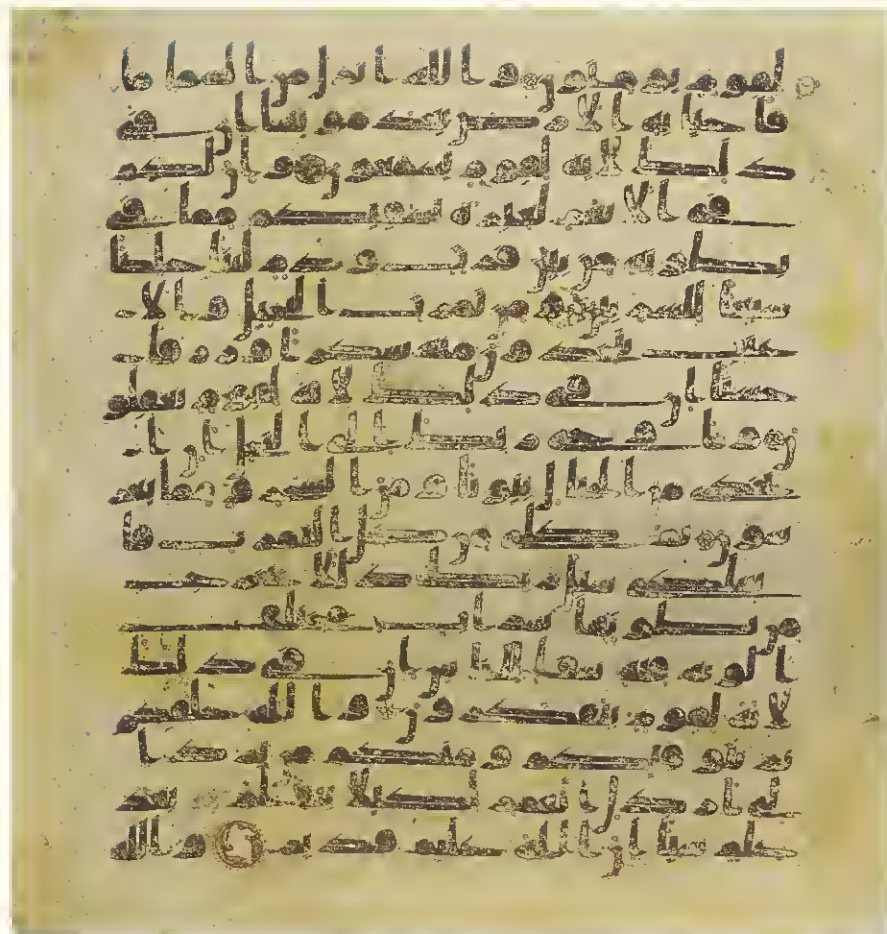 لقوم يؤمنون والله انزل من السما ما
فاحيا به الارض بعد موتها ان في
ذلك لاية لقوم يسمعون وان لكم
في الانعم لعبرة نسقيكم مما في
بطونه من بين فرث ودم لبنا خالصا
سائغا للشربين ومن ثمرت النخيل والا
عنب تتخذون منه سكرا ورزقا
حسنا ان في ذلك لاية لقوم يعقلو
ن واوحى ربك الى النحل ان ا
تخذي من الجبال بيوتا ومن الشجر ومما يعر
شون ثم كلي من كل الثمرت فا
سلكي سبل ربك ذللا يخرج
من بطونها شراب مختلف
الونه فيه شفا للناس ان في ذلك
لاية لقوم يتفكرون والله خلقكم
ثم يتوفيكم ومنكم من يرد ا
لى ارذل العمر لكيلا يعلم بعد
علم شيا ان الله عليم قدير والله